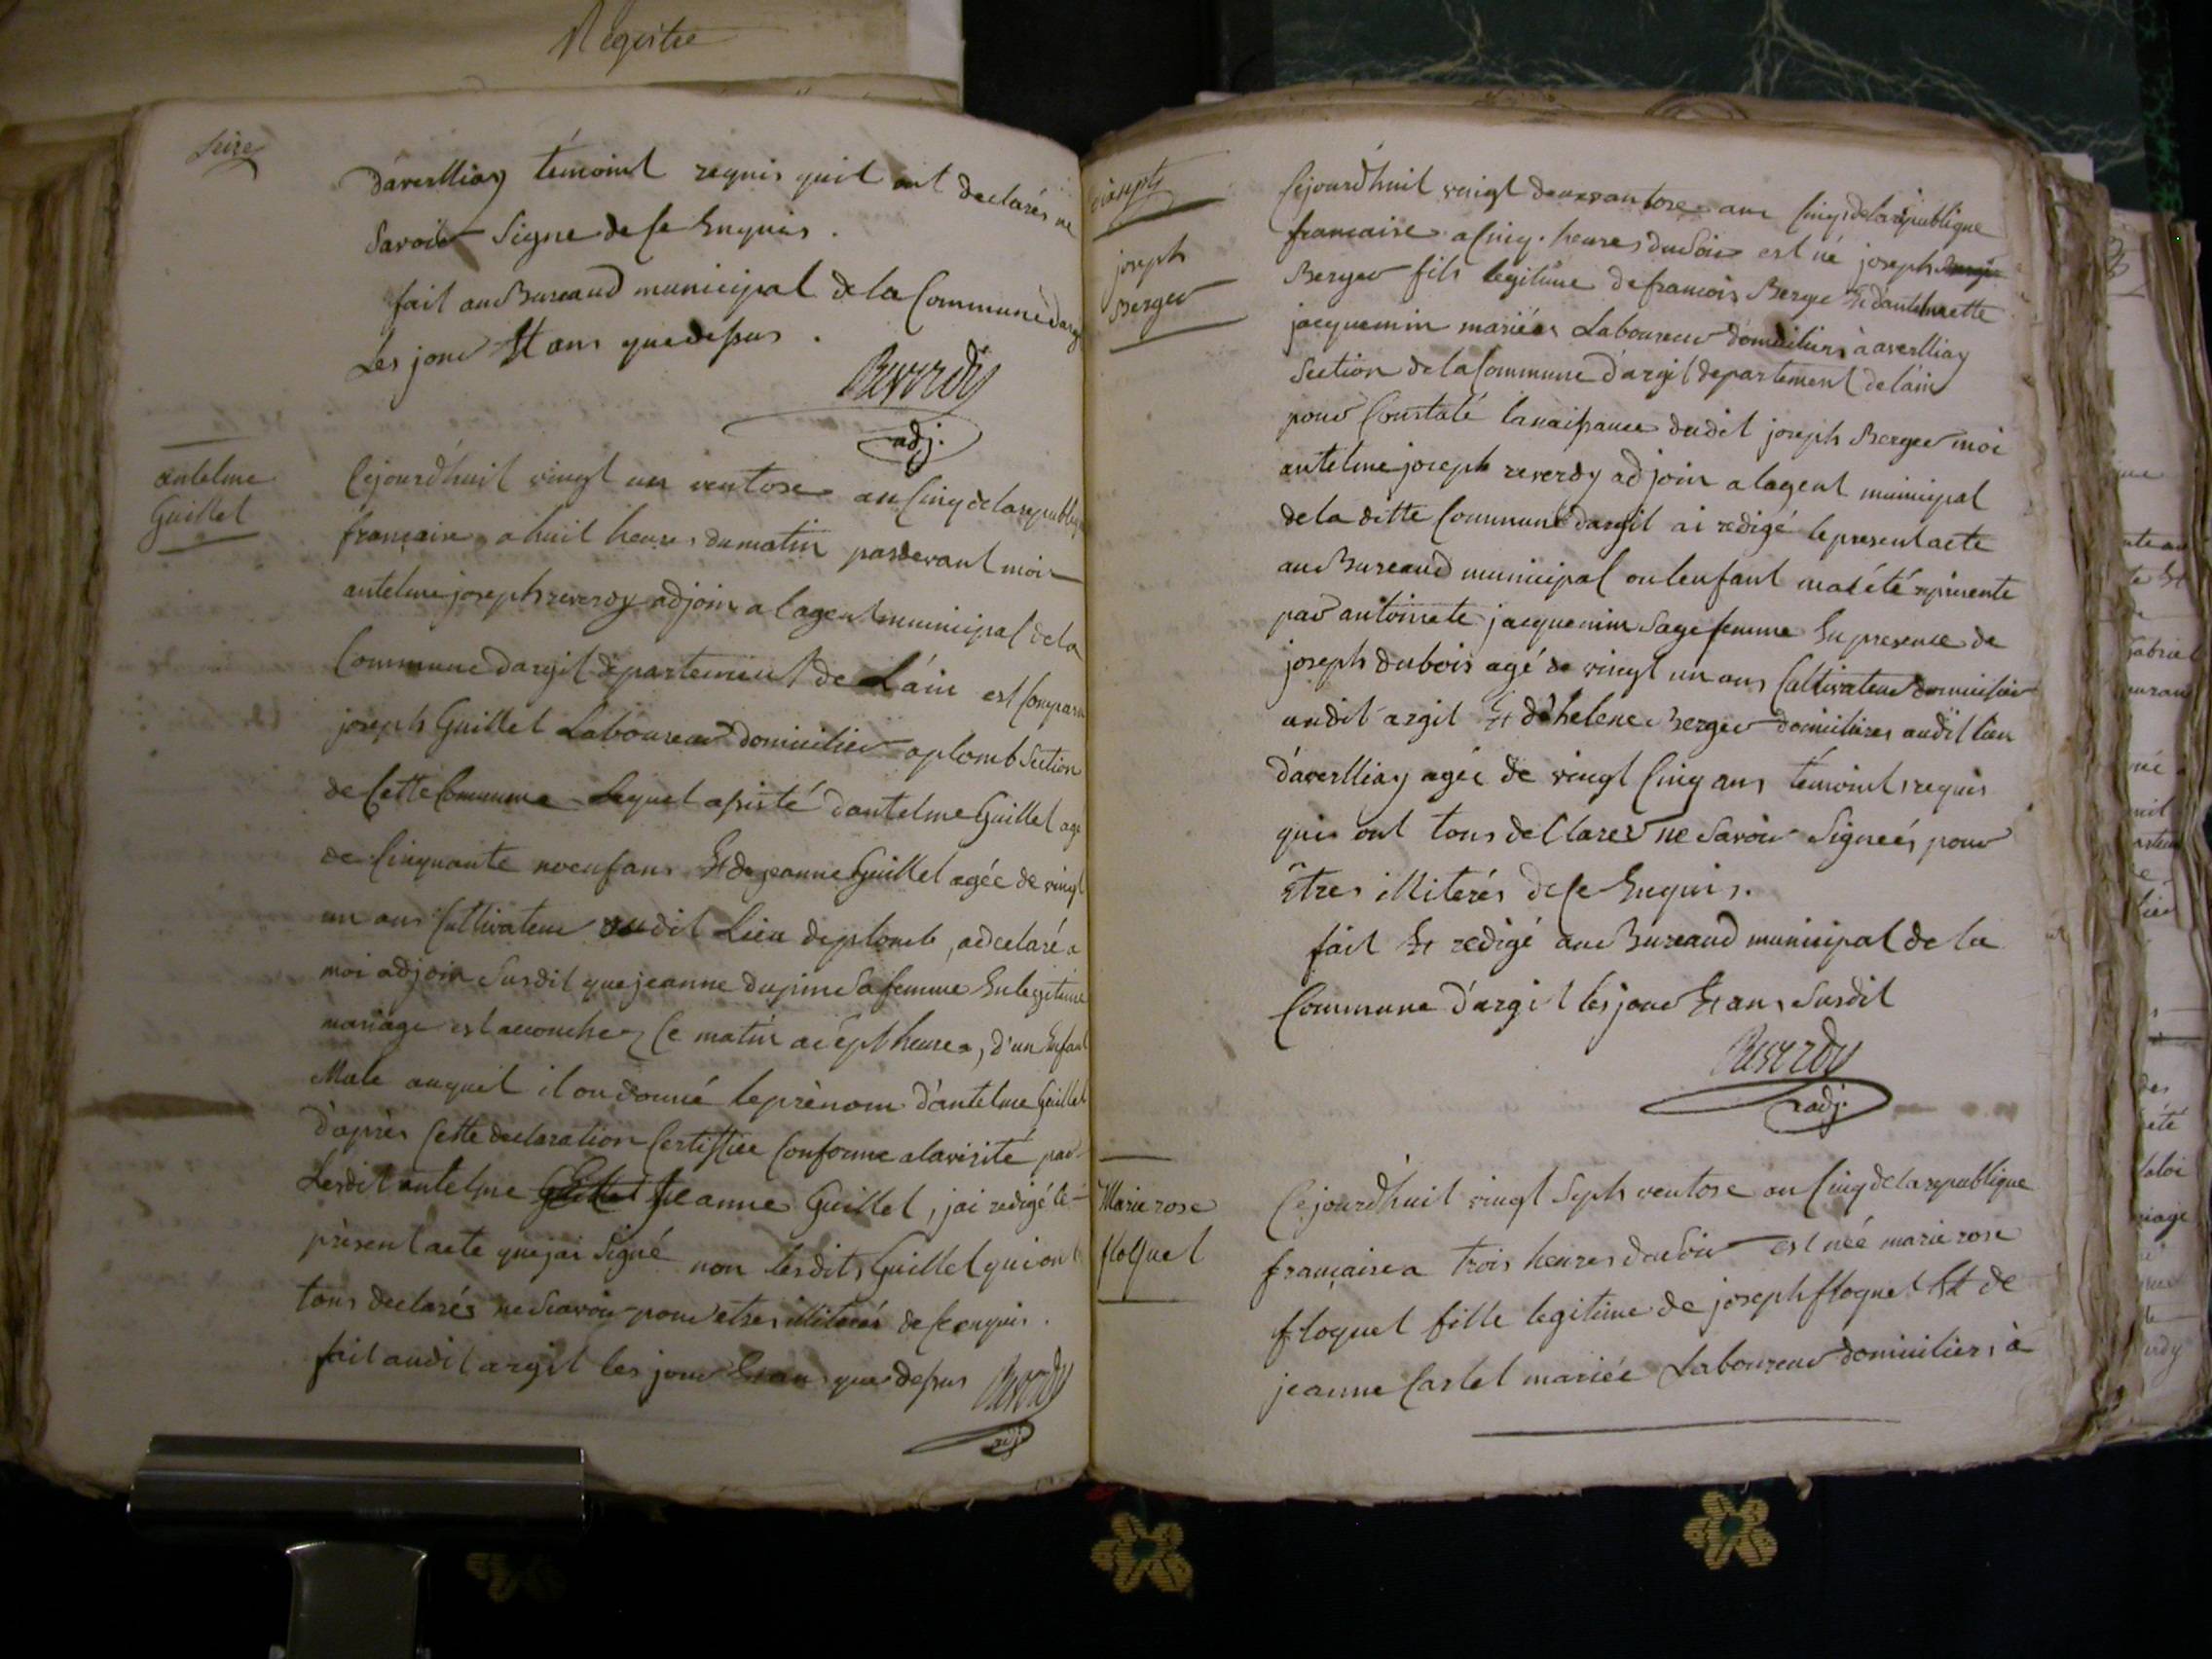 Registre
Seize
d'averlliay témoint requis quil ont declarés ne
Savoir Signe de ce Enquis.
fait au Bureaud municipal de la Commune d'argil
Les jour Et ans que dessus.
Reverdy
adj.
antelme
Guillet
Cejourd'huit vingt un ventose an Cinq de la republique
française a huit heures du matin pardevant moi
antelme joseph reverdy adjoin a l'agent municipal de la
Commune d'argil departement de L'áin est Comparu
joseph Guillet Laboureur domicilier a plomb Section
de Cette Commune Lequel assisté d'antelme Guillet agé
de Cinquante noeuf ans Et de jeanne Guillet agée de vingt
un ans Cultivateur audit Lieu de plomb, a declaré a
moi adjoin Susdit que jeanne dupin Sa femme En legitime
mariage est accouche Ce matin a sépt heures, d'un Enfant
Male auquel il on donné le prènom d'antelme Guillet
d'après Cette declaration Certiffiée Conforme a la verité par
Lesdit antelme Guillet jeanne Guillet, jai redigé le
présent acte que jai Signé non lesdits Guillet qui ont
tous declarés ne Scavoir pour etres illiterés de ce enquis.
fait audit argil les jour Et an que dessus Reverdy
adj
dixsept
joseph
Berger
Cejourd'huit vingt deux vantose an Cinq de la république
francaise a Cinq heures du Soir est né joseph
Berger fils legitime de francois Berger Et d'antelmette
jacquemin mariées Laboureur domiciliers à averlliay
Section de la Commune d'argil departement de láin
pour Constaté la naissance dudit joseph Berger moi
antelme joseph reverdy adjoin a lagent municipal
de la ditte Commune d'argil ai redigé le present acte
au Bureaud municipal ou lenfant ma été représente
par antoinete jacquemin Sage femme En presence de
joseph dubois agé de vingt un ans Cultivateur domicilier
audit argil Et d'helene Berger domicilieres audit lieu
d'averlliay agée de vingt Cinq ans témoint requis
qui ont tous declarer ne Savoir Signeés pour
êtres illiterés de ce Enquis.
fait Et redigé au Bureaud municipal de la
Commune d'argil les jour Et ans Susdit
Reverdy
adj.
Marie rose
floquet
Cejourd'huit vingt Seph ventose an Cinq de la republique
française a trois heures du Soir est née marie rose
floquet fille legitime de joseph floquet Et de
jeanne Castel mariée Laboureur domiciliers à